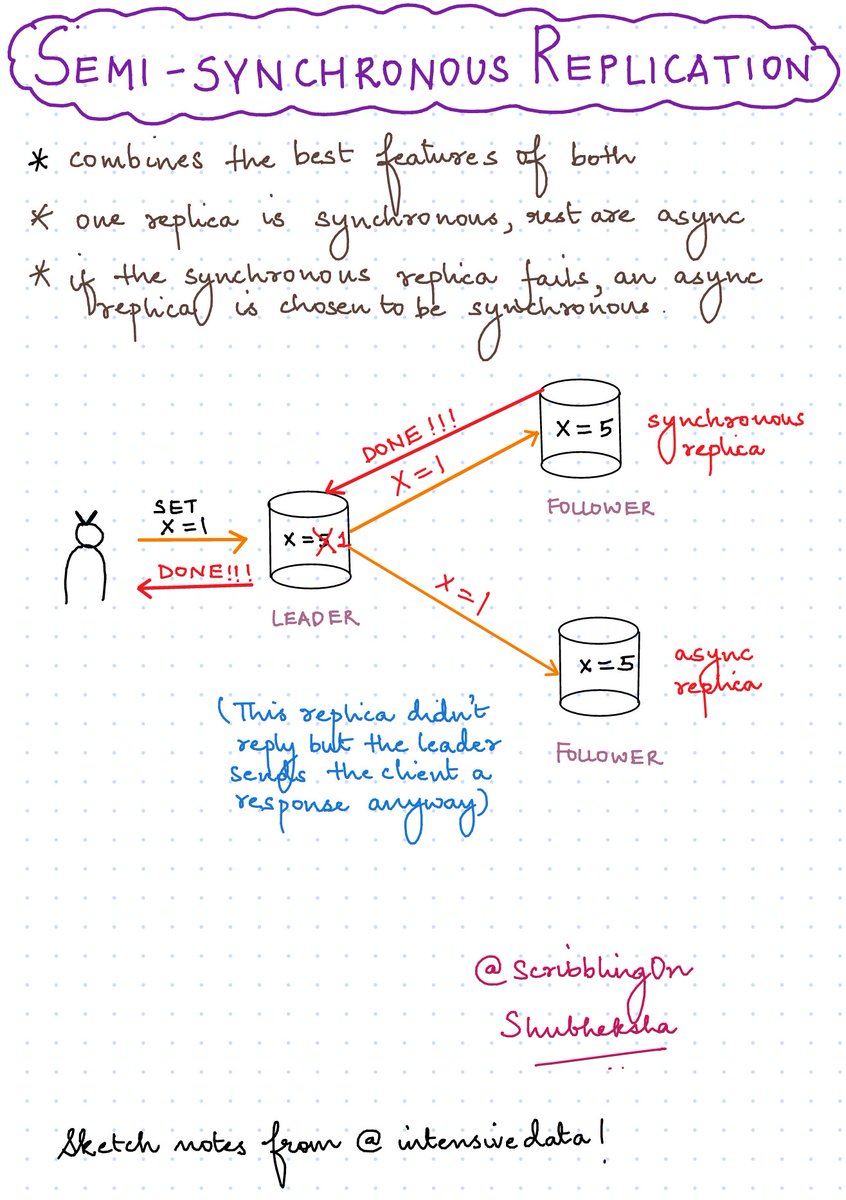 SEMI-SYNCHRONOUS REPLICATION
* combines the best features of both
* one replica is synchronous, rest are async
* if the synchronous replica fails, an async
replica is chosen to be synchronous.
DONE!!!
X=1
X=5
synchronous
replica
FOLLOWER
SET
X=1
DONE!!!
X=5 1
LEADER
X=1
X=5
async
replica
FOLLOWER
(This replica didn't
reply but the leader
sends the client a
response anyway)
@ScribblingOn
Shubheksha
Sketch notes from @intensivedata!